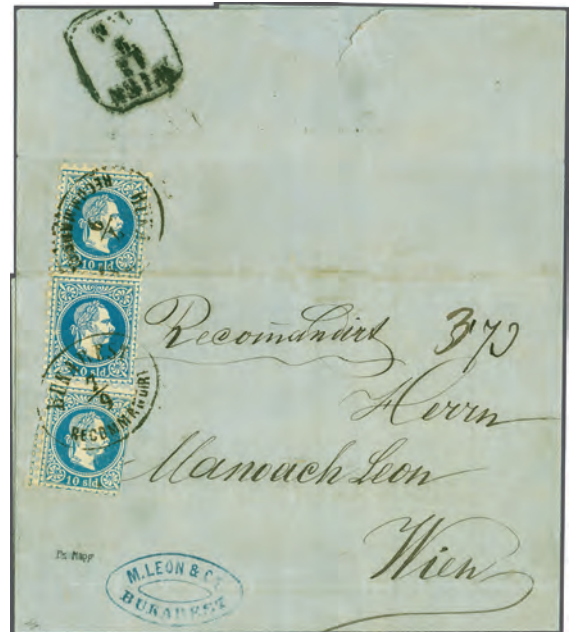 WIEN
RECOMMANDIRT
10 sld
BUKAREST
7/9
RECOMMANDIRT
10 sld
Recomandirt 373
Herrn
Manoach Leon
Wien
M. LEON & Co
BUKAREST